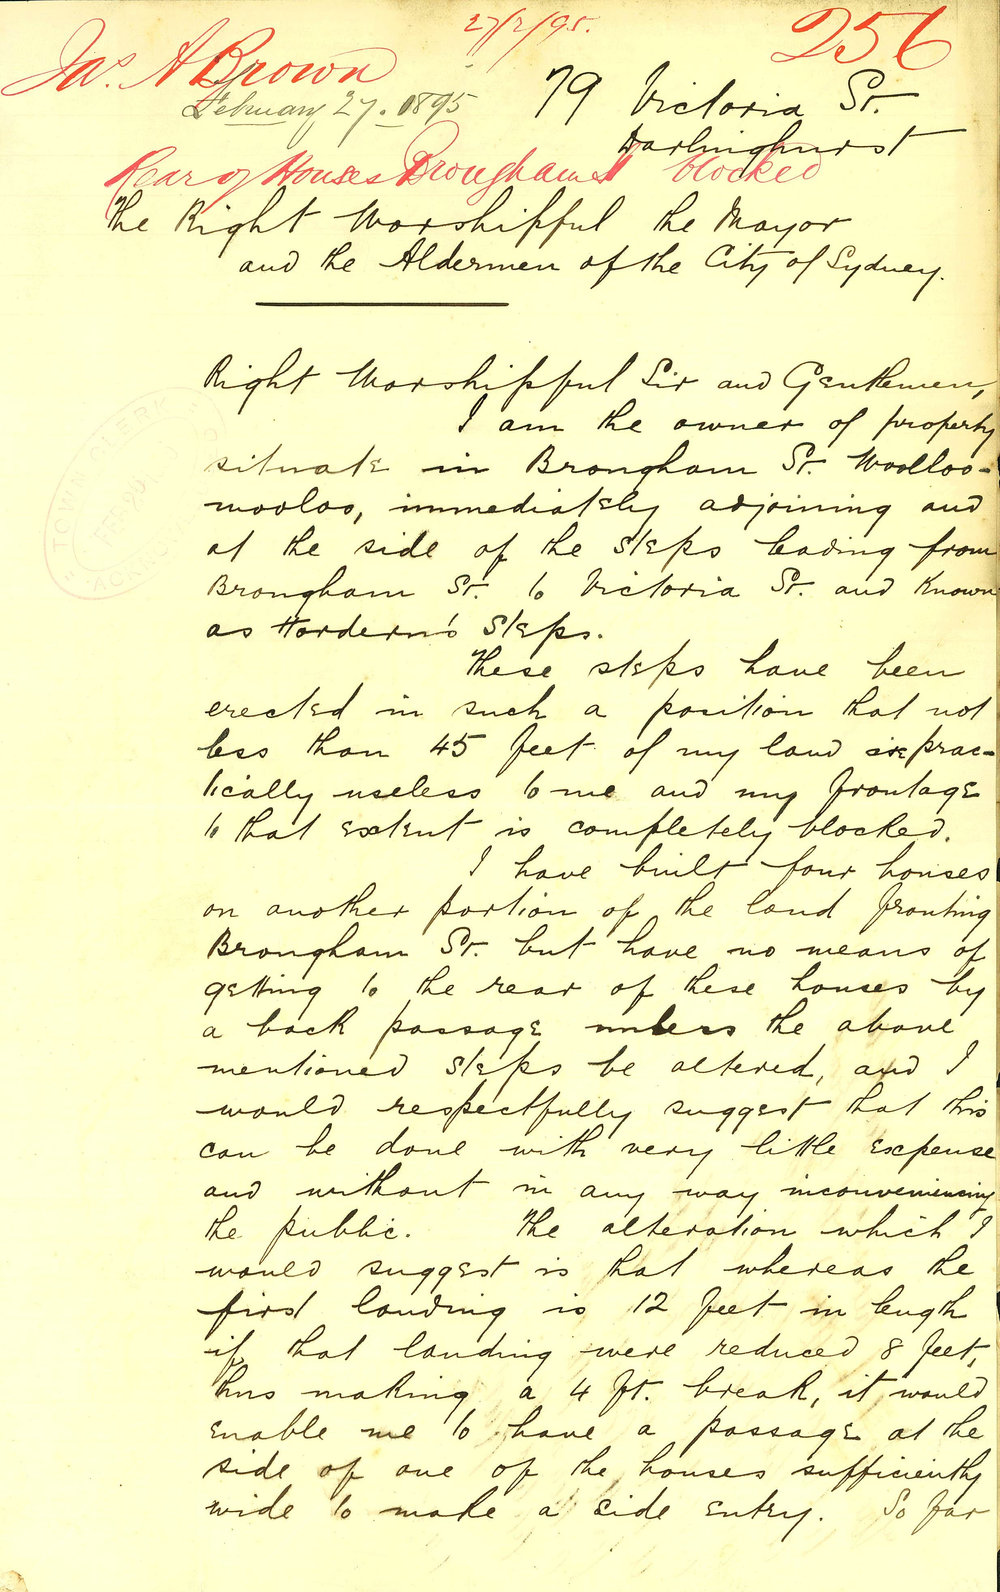 27/2/95.
256
Jas. A Brown
February 27. 1895
79 Victoria St.
Darlinghurst
Rear of Houses Brougham St blocked
The Right Worshipful the Mayor
and the Aldermen of the City of Sydney.
Right Worshipful Sir and Gentlemen,
I am the owner of property
situate in Brougham St. Woolloo-
mooloo, immediately adjoining and
at the side of the steps leading from
Brougham St. to Victoria St. and known
as Hordern's Steps.
These steps have been
erected in such a position that not
less than 45 feet of my land is prac-
tically useless to me and my frontage
to that extent is completely blocked.
I have built four houses
on another portion of the land fronting
Brougham St. but have no means of
getting to the rear of these houses by
a back passage unless the above
mentioned steps be altered, and I
would respectfully suggest that this
can be done with very little expense
and without in any way inconveniencing
the public. The alteration which I
would suggest is that whereas the
first landing is 12 feet in length
if that landing were reduced 8 feet,
thus making a 4 ft. break, it would
enable me to have a passage at the
side of one of the houses sufficiently
wide to make a side entry. So far
TOWN CLERK